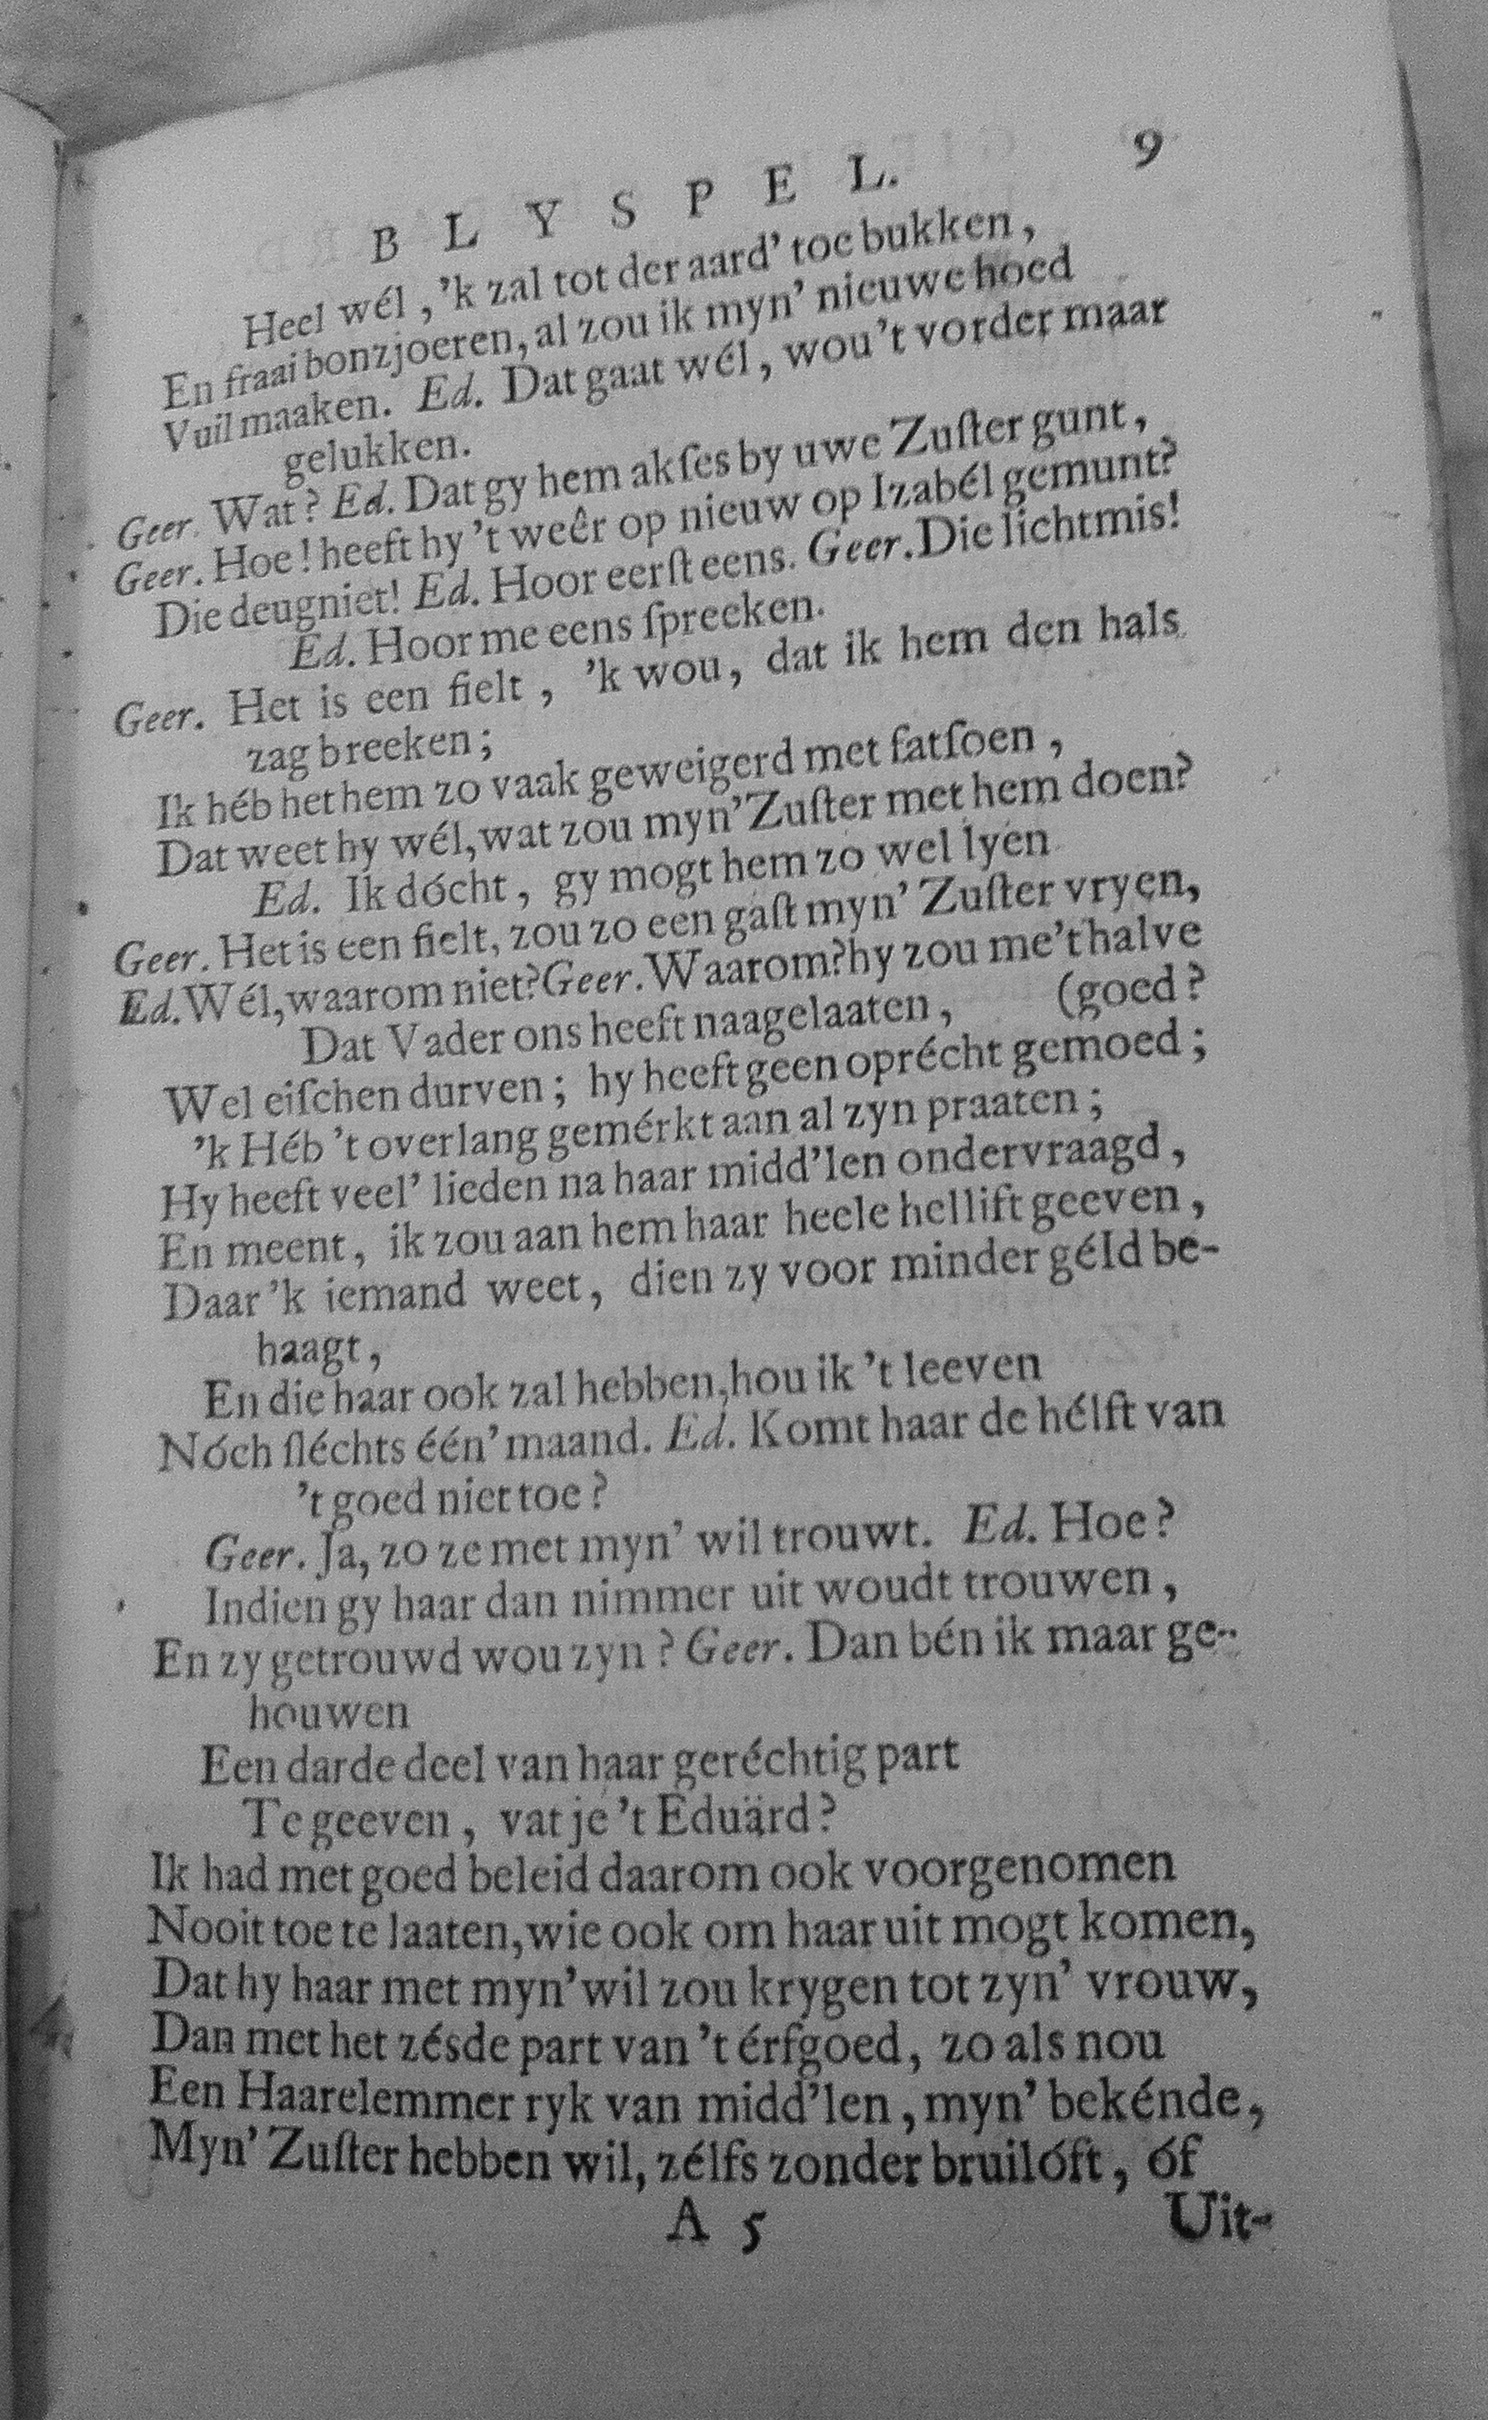 BLYSPEL. 9
Heel wél, 'k zal tot der aard' toe bukken,
En fraai bonzjoeren, al zou ik myn' nieuwe hoed
Vuil maaken. Ed. Dat gaat wél, wou 't vorder maar
gelukken.
Geer. Wat? Ed. Dat gy hem akſes by uwe Zuſter gunt,
Geer. Hoe! heeft hy 't weêr op nieuw op Izabél gemunt?
Die deugniet! Ed. Hoor eerſt eens. Geer. Die lichtmis!
Ed. Hoor me eens ſpreeken.
Geer. Het is een fielt, 'k wou, dat ik hem den hals
zag breeken;
Ik héb het hem zo vaak geweigerd met fatſoen,
Dat weet hy wél, wat zou myn' Zuſter met hem doen?
Ed. Ik dócht, gy mogt hem zo wel lyën
Geer. Het is een fielt, zou zo een gaſt myn' Zuſter vryen,
Ed. Wél, waarom niet? Geer. Waarom? hy zou me 't halve
Dat Vader ons heeft naagelaaten, (goed?
Wel eiſchen durven; hy heeft geen oprécht gemoed;
'k Héb 't overlang gemérkt aan al zyn praaten;
Hy heeft veel' lieden na haar midd'len ondervraagd,
En meent, ik zou aan hem haar heele hellift geeven,
Daar 'k iemand weet, dien zy voor minder géld be-
haagt,
En die haar ook zal hebben, hou ik 't leeven
Nóch ſléchts één' maand. Ed. Komt haar de hélft van
't goed niet toe?
Geer. Ja, zo ze met myn' wil trouwt. Ed. Hoe?
Indien gy haar dan nimmer uit woudt trouwen,
En zy getrouwd wou zyn? Geer. Dan bén ik maar ge-
houwen
Een darde deel van haar geréchtig part
Te geeven, vat je 't Eduärd?
Ik had met goed beleid daarom ook voorgenomen
Nooit toe te laaten, wie ook om haar uit mogt komen,
Dat hy haar met myn' wil zou krygen tot zyn' vrouw,
Dan met het zésde part van 't érfgoed, zo als nou
Een Haarelemmer ryk van midd'len, myn' bekénde,
Myn' Zuſter hebben wil, zélfs zonder bruilóft, óf
A 5 Uit-